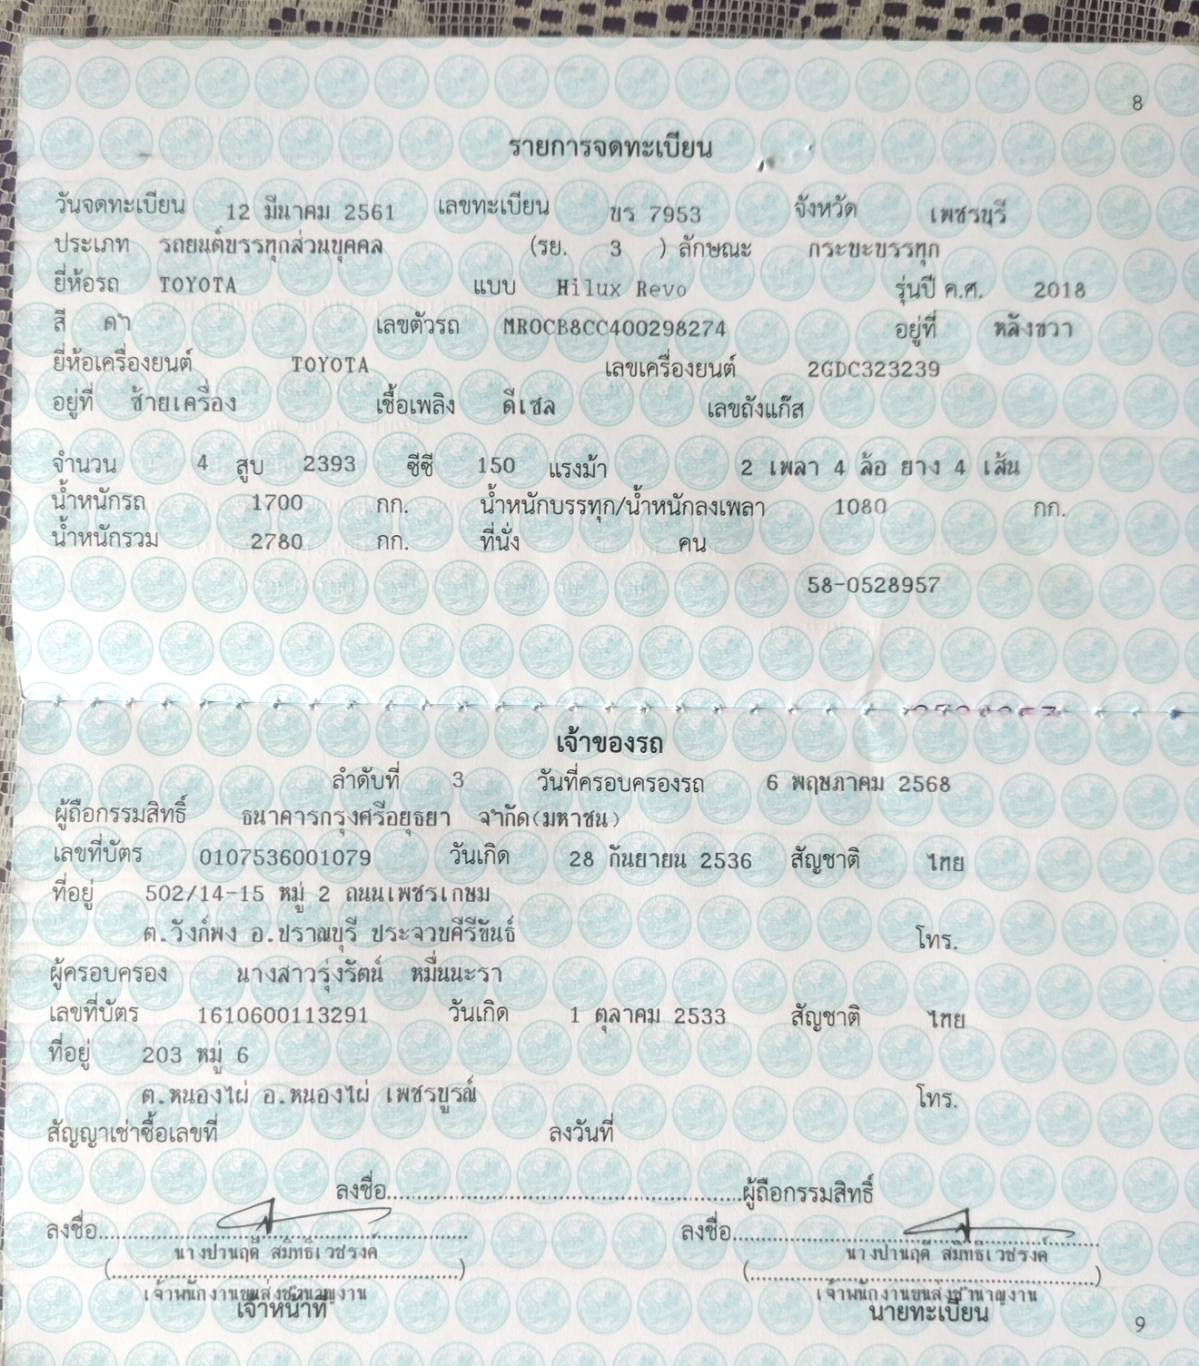 8
รายการจดทะเบียน
วันจดทะเบียน 12 มีนาคม 2561 เลขทะเบียน ขร 7953 จังหวัด เพชรบุรี
ประเภท รถยนต์บรรทุกส่วนบุคคล (รย. 3 ) ลักษณะ กระบะบรรทุก
ยี่ห้อรถ TOYOTA แบบ Hilux Revo รุ่นปี ค.ศ. 2018
สี ดำ เลขตัวรถ MR0CB8CC400298274 อยู่ที่ หลังขวา
ยี่ห้อเครื่องยนต์ TOYOTA เลขเครื่องยนต์ 2GDC323239
อยู่ที่ ซ้ายเครื่อง เชื้อเพลิง ดีเซล เลขถังแก๊ส
จำนวน 4 สูบ 2393 ซีซี 150 แรงม้า 2 เพลา 4 ล้อ ยาง 4 เส้น
น้ำหนักรถ 1700 กก. น้ำหนักบรรทุก/น้ำหนักลงเพลา 1080 กก.
น้ำหนักรวม 2780 กก. ที่นั่ง คน
58-0528957
เจ้าของรถ
ลำดับที่ 3 วันที่ครอบครองรถ 6 พฤษภาคม 2568
ผู้ถือกรรมสิทธิ์ ธนาคารกรุงศรีอยุธยา จำกัด(มหาชน)
เลขที่บัตร 0107536001079 วันเกิด 28 กันยายน 2536 สัญชาติ ไทย
ที่อยู่ 502/14-15 หมู่ 2 ถนนเพชรเกษม
ต.วังก์พง อ.ปราณบุรี ประจวบคีรีขันธ์ โทร.
ผู้ครอบครอง นางสาวรุ่งรัตน์ หมื่นนะรา
เลขที่บัตร 1610600113291 วันเกิด 1 ตุลาคม 2533 สัญชาติ ไทย
ที่อยู่ 203 หมู่ 6
ต.หนองไผ่ อ.หนองไผ่ เพชรบูรณ์ โทร.
สัญญาเช่าซื้อเลขที่ ลงวันที่
ลงชื่อ............ผู้ถือกรรมสิทธิ์
ลงชื่อ............ ลงชื่อ............
นางปานฤดี สมิทธิเวชรงค์ นางปานฤดี สมิทธิเวชรงค์
(............) (............)
เจ้าพนักงานขนส่งชำนาญงาน เจ้าพนักงานขนส่งชำนาญงาน
เจ้าหน้าที่ นายทะเบียน
9